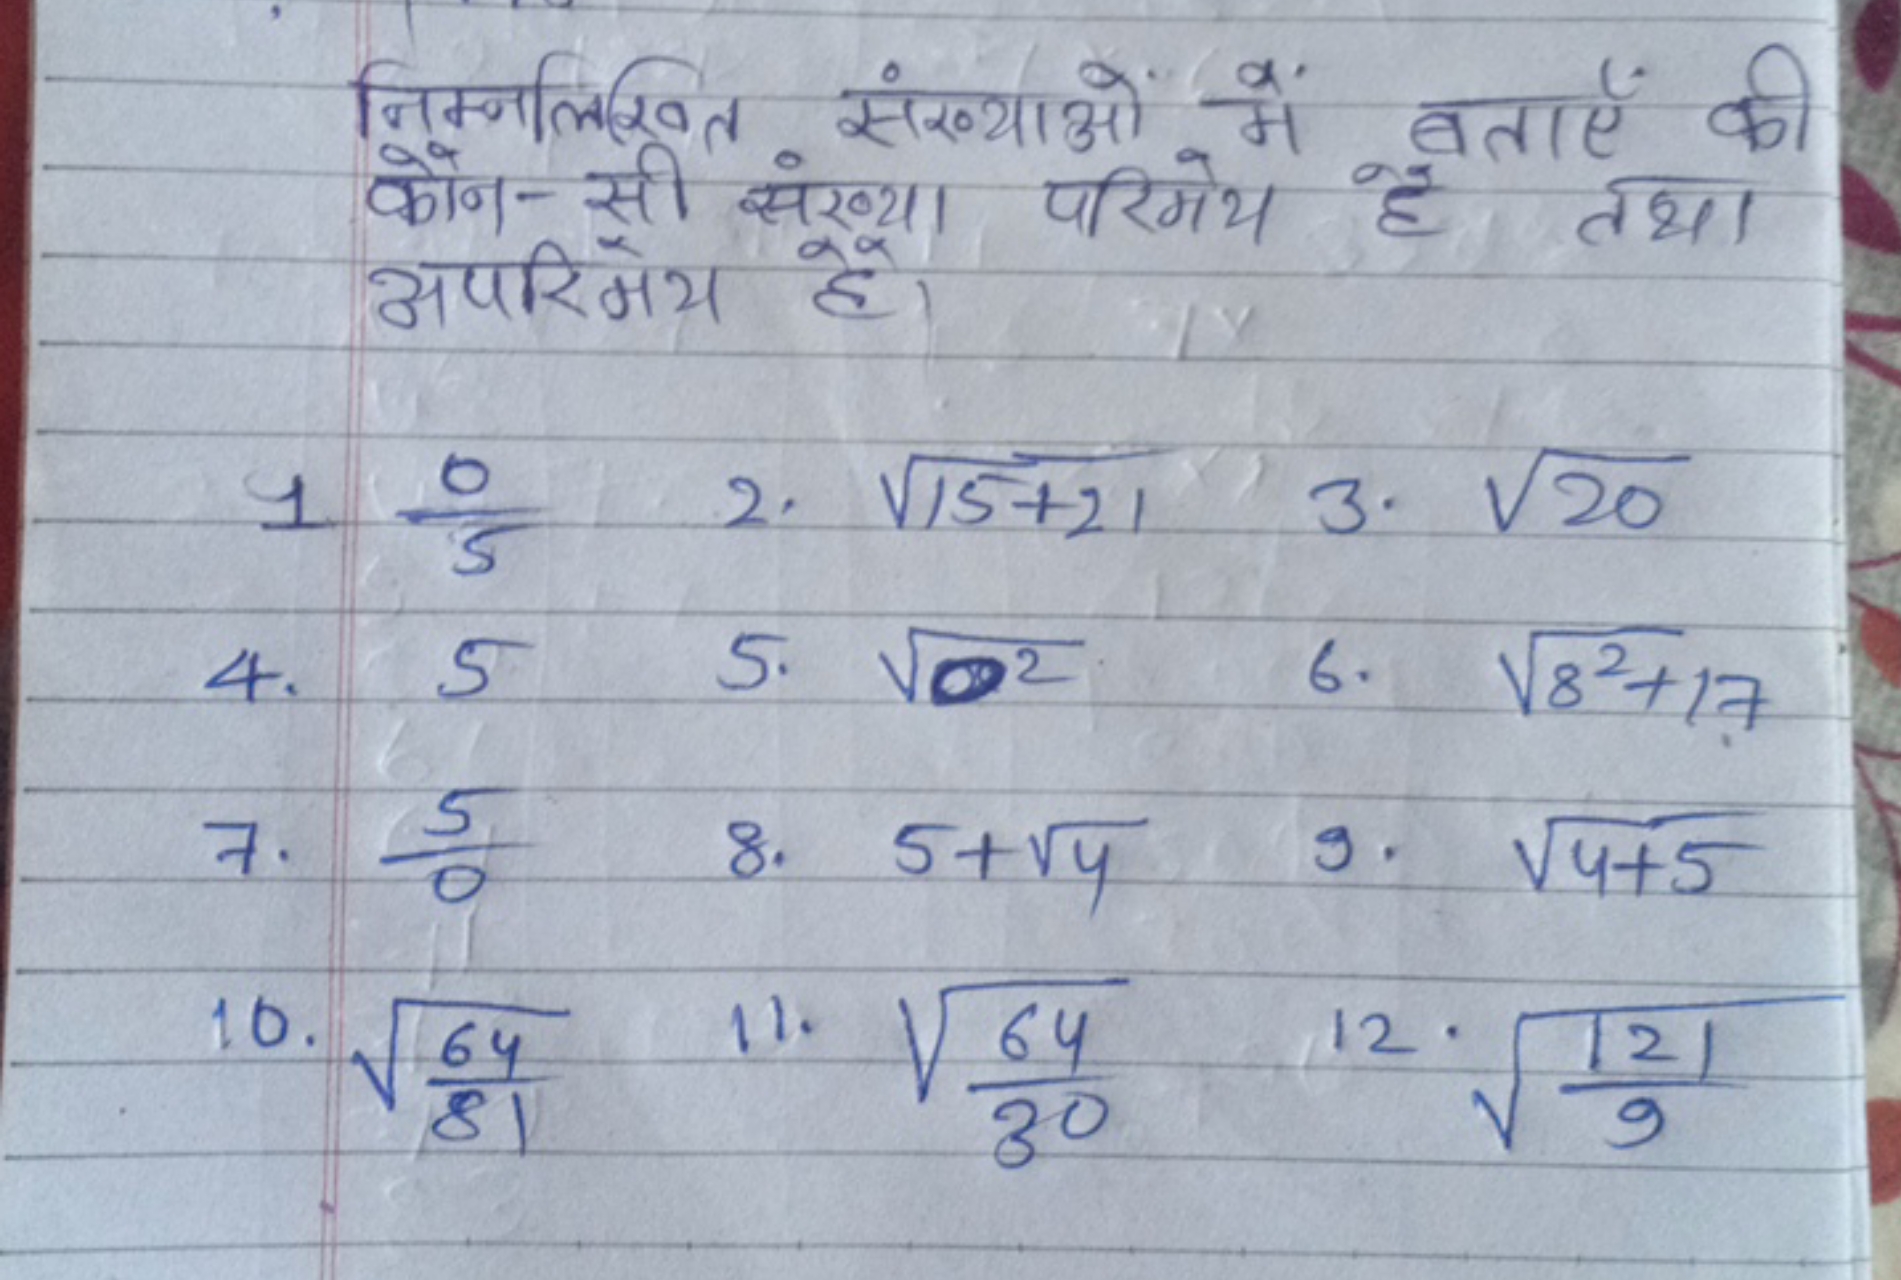 निम्नलिखित संख्याओं में बताएँ की
कौन-सी संख्या परिमेय है तथा
अपरिमेय हैं।
1 0/5 2. √15+21 3. √20
4. 5 5. √0² 6. √8²+17
7. 5/0 8. 5+√4 9. √4+5
10. √64/81 11. √64/30 12. √121/9